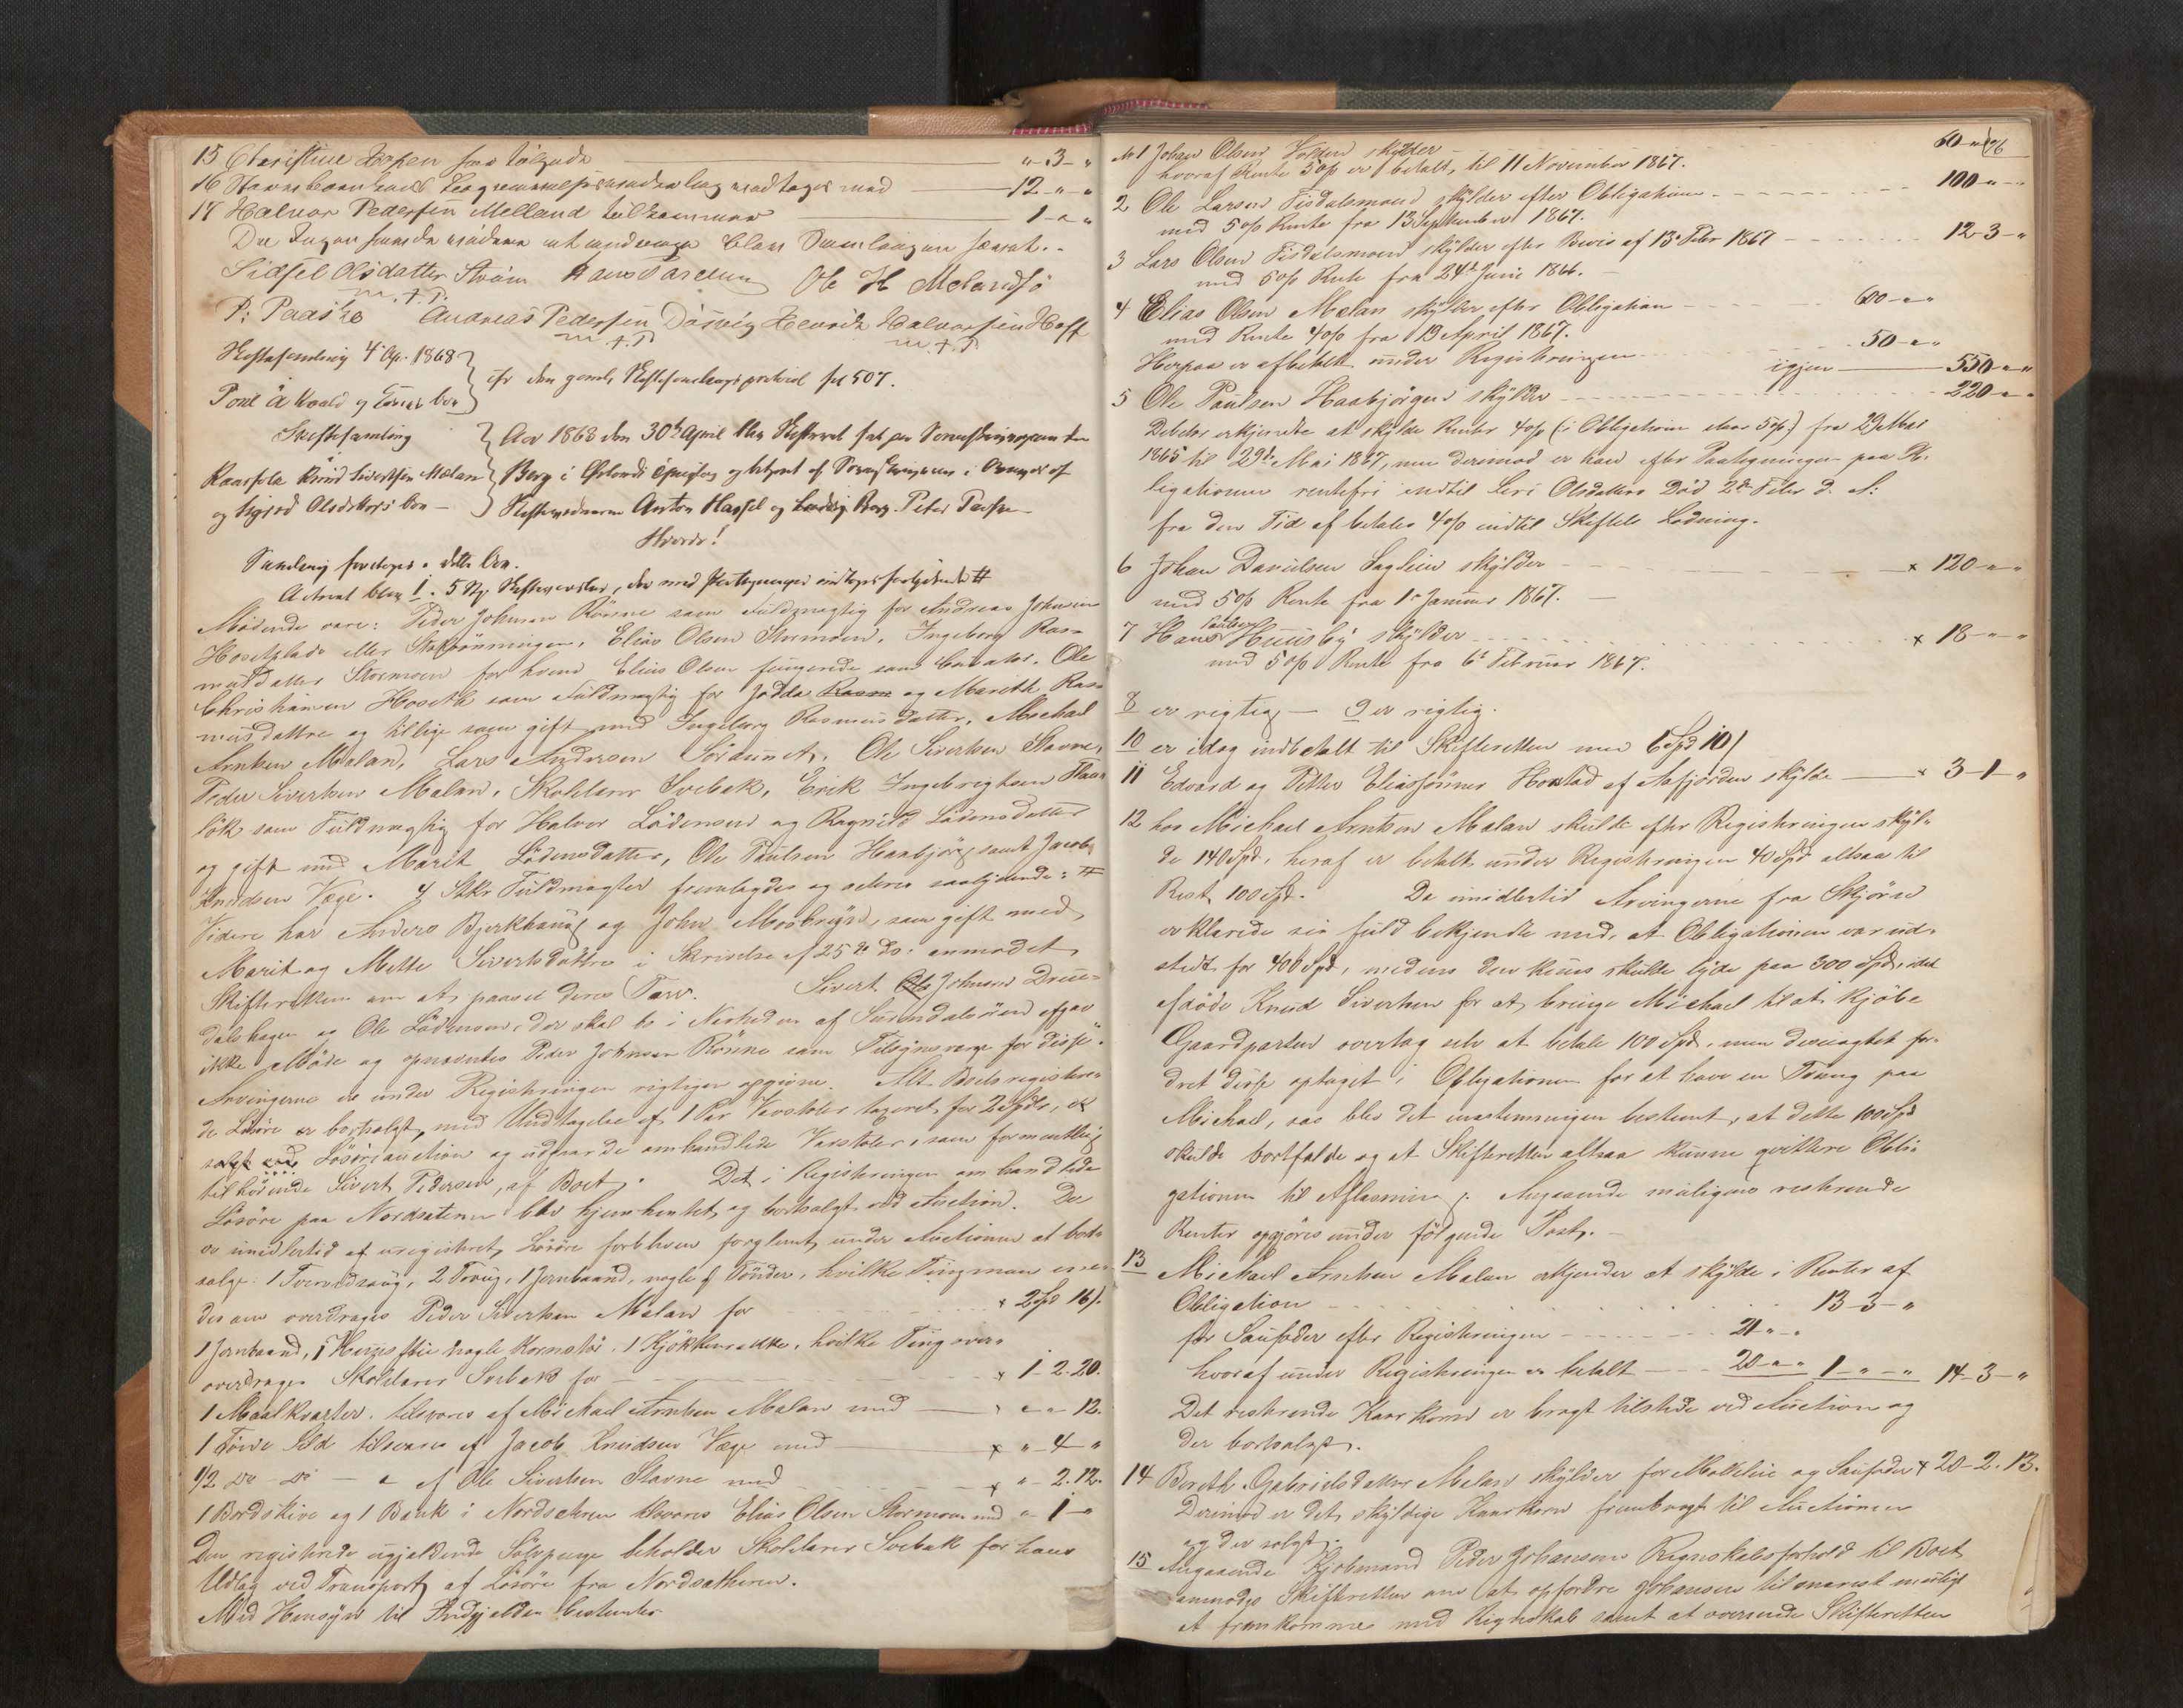 15 Christine Hopen tilgode " - 3 - "
16 12 - " - "
17 Halvor Pedersen Melland tilkommer 1 - " - "
Samlingen hævet.
Sidsel Olsdatter Strøm Hans Larsen Ole H Melandsø
m. f. P.
P: Paaske Andreas Pedersen Dösvig Henrik Halvorsen Hoff
m. f. P. m. f. P.
Skiftesamling 4 Ap. 1868
cfr den gamle Skiftesamlingsprotocol fol 507.
Skiftesamling
Aar 1868 den 30te April blev Skifteret sat paa
Kaarfolk Knud Sivertsen Mælan
Berg i og betjent af Sorenskriveren i Overvær af
og Sigrid Olsdatters bo -
Skiftevidnerne Anton Hassel og Peter
Hvorda!
Samling foretoges i dette Bo.
Mödende vare: Peder Johnsen Rönne som Fuldmægtig for Andreas Johnsen
Hosetplads eller Elias Olsen Stormoen, Ingeborg Ras=
musdatter Stormoen for hvem Elias Olsen fungerede som Curator, Ole
Christiansen Hoseth som Fuldmægtig for og Mareth Ras=
musdattre og tillige som gift med Ingeborg Rasmusdatter, Michael
Arntsen Malan, Lars Andersen Ole Sivertsen Stavne,
Peder Sivertsen Malan, Skolelærer Svebak, Erik Ingebrigtsen
som Fuldmægtig for Halvor Lödensen og Ragnild Lödensdatter
og gift med Marit Lödensdatter, Ole Paulsen Haabjörg samt Jacob
Knudsen Væge. 4 Stkr Fuldmagter fremlagdes og acteres saalydende: #
Videre har Anders Bjerkhaug og John som gift med
Marit og Mette Sivertsdöttre i Skrivelse af 25de ds. anmodet
Skifteretten om at paasee deres Tarv. Sivert Johnsen
dalshagen og Ole Lödensen, der skal bo i Nærheden af Surendalsören afgav
ikke Möde og opnævntes Peder Johnsen Rönne som Tilsynsværge for disse.
Arvingerne er under Registreringen rigtigen opgivne. Alt Boets registrere=
de Lösöre er bortsolgt, med Undtagelse af 1 Par Vævstoler taxeret for 2 Spdlr,
Lösöreauction og udgaar de omhandlede Vævstoler, som formentlig
tilhörende Sivert Pedersen, af Boet. Det i Registreringen omhandlede
Lösöre paa Nordsæteren blev hjemhentet og bortsolgt ved Auction. Der
er imidlertid af uregistreret Lösöre forbleven forglemt under Auctionen at bort=
sælge: 1 Tvervedsaug, 2 Traug, 1 Jernbaand, nogle Tönder, hvilke Ting man
des om overdrages Peder Sivertsen Malan for x 2 Spd 16 s.
1 Jernbaand, 1 nogle 1 Kjökkenrække, hvilke Ting over=
overdrages Skolelærer Svebak for x 1 - 2 - 20.
1 Maalkvarter, tilsvares af Michael Arntsen Malan med x " - " - 12.
1 Tönde Sild tilsvares af Jacob Knudsen Væge med x " - 4 - "
1/2 Do - Do - " af Ole Sivertsen Stavne med x " - 2 - 12.
1 Bordskive og 1 Bænk i Nordsæteren tilsvares Elias Olsen Stormoen med " - 1 - "
Den registrerede ugjældende Sölvpenge beholder Skolelærer Svebak for hans
Udlæg ved Transport af Lösöre fra Nordsætheren.
Med Hensyn til Indgjælden bestemtes
No 1 Johan Olsen skylder 60 - " - "
hvoraf Rente 5 0/0 er betalt til 11 November 1867.
2 Ole Larsen Tisdalsmoen skylder efter Obligation 100 - " - "
med 5 0/0 Rente fra 13 September 1867.
3 Lars Olsen Tisdalsmoen skylder efter Bevis af 13de Febr 1867 12 - 3 - "
med 5 0/0 Rente fra 24de Juni 1866.
4 Elias Olsen Mælan skylder efter Obligation 600 - " - "
med Rente 4 0/0 fra 13 April 1867.
Herpaa er afbetalt under Registreringen 50 - " - "
igjen 550 - " - "
5 Ole Paulsen Haabjörgen skylder 220 - " - "
Debitor erkjendte at skylde Renter 4 0/0 (i Obligation staar 5 0/0) fra 29 Mai
1865 til 29de Mai 1867, men derimod er han efter Paategningen paa Ob=
ligationen rentefri indtil Seri Olsdatters Död 2den Febr d. A:
fra den Tid af betales 4 0/0 indtil Skiftets Slutning.
6 Johan Danielsen Saglien skylder x 120 - " - "
med 5 0/0 Rente fra 1ste Januar 1867. -
7 Hans Paulsen Huusby skylder x 18 - " - "
med 5 0/0 Rente fra 6te Februar 1867.
8 er rigtig - 9 er rigtig.
10 er idag indbetalt til Skifteretten med 6 Spd 10 s
11 Edvard og Petter Eliassönner Hostad af Aafjorden skylde x 3 - 1 - "
12 hos Michael Arntsen Malan skulde efter Registreringen skyl=
de 140 Spd, heraf er betalt under Registreringen 40 Spd altsaa til
Rest 100 Spd. Da imidlertid Arvingerne fra Skjören
erklærede sig fuld bekjendte med, at Obligationen var ud=
stedt for 400 Spd, medens den kuns skulde lyde paa 300 Spd, idet
afdöde Knud Sivertsen for at bringe Michael til at kjöbe
Gaardparten overtog selv at betale 100 Spd, men desuagtet for=
dret disse optaget i Obligationen for at have en Tvang paa
Michael, saa blev det eenstemmigen bestemt, at dette 100 Spd
skulde bortfalde og at Skifteretten altsaa kunne qvittere Obli=
gationen til Aflæsning. Angaaende muligens resterende
Renter opgjöres under fölgende Post. -
13 Michael Arntsen Malan erkjender at skylde i Renter af
Obligation 13 - 3 - "
for Saufoder efter Registreringen 21 - " - "
hvoraf under Registreringen er betalt 20 - " - " 1 - " - " 14 - 3 - "
Det resterende Kaarkorn er bragt tilstede ved Auction og
der bortsolgt.
14 Bereth Gabrielsdatter Melan skylder for og Saufoder x 20 - 2 - 13.
Derimod er det skyldige Kaarkorn frembragt til Auctionen
og der solgt.
15 Angaaende Kjöbmand Peder Johansens Regnskabsforhold til Boet
anmodes Skifteretten om at opfordre Johansen til snarest muligt
at fremkomme med Regnskab samt at oversende Skifteretten